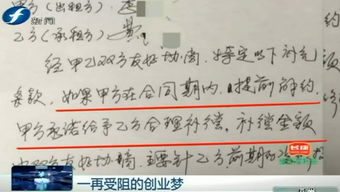 新闻
甲方（出租方）
乙方（承租方）
约
经甲乙双方友好协商，特定以下补充
条款，如果甲方在合同期内，提前解约，
甲方承诺给予乙方合理补偿，补偿金额
由双方友好协商，
乙方前期
一再受阻的创业梦